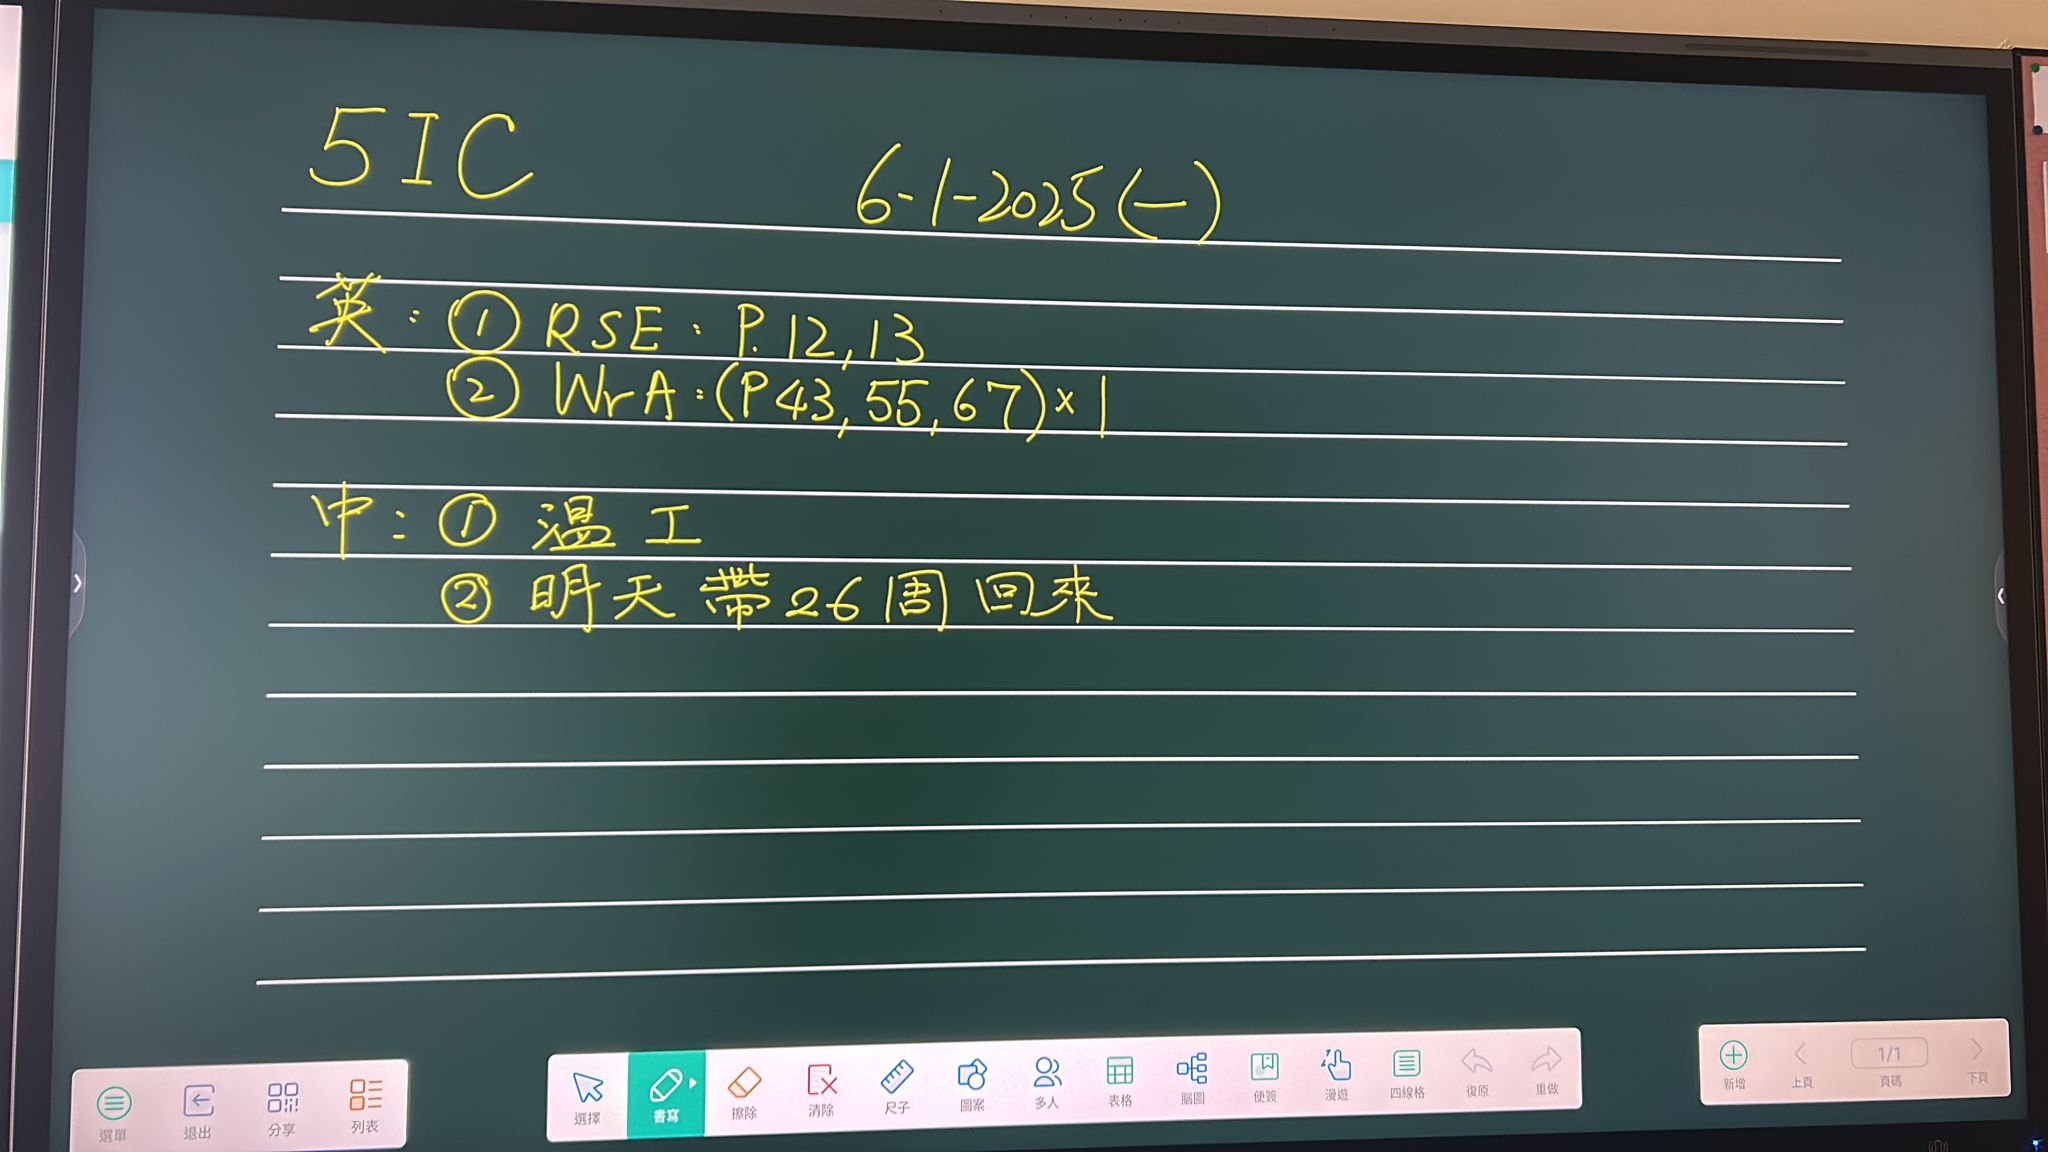 5IC
6-1-2025(一)
英：① RSE：P.12,13
② WrA：(P43,55,67)×1
中：① 溫工
② 明天帶26周回來
選單 退出 分享 列表
選擇 書寫 擦除 清除 尺子 圖案 多人 表格 腦圖 便簽 漫遊 四線格 復原 重做
新增 上頁 1/1 頁碼 下頁